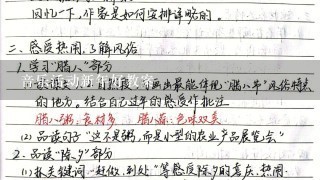 回忆一下,作家是如何安排详略的。
二、感受热闹,了解风俗
1.学习"腊八"部分
画出最能体现"腊八节"风俗特点
的地方。结合自己过年的感受作批注
腊八粥:食材多 腊八蒜:色味双美
(2)品读句子"这不是粥,而是小型的农业产品展览会"
2.品读"除夕"部分
(1)抓关键词,"赶做、到处"等感受除夕的喜庆、热闹